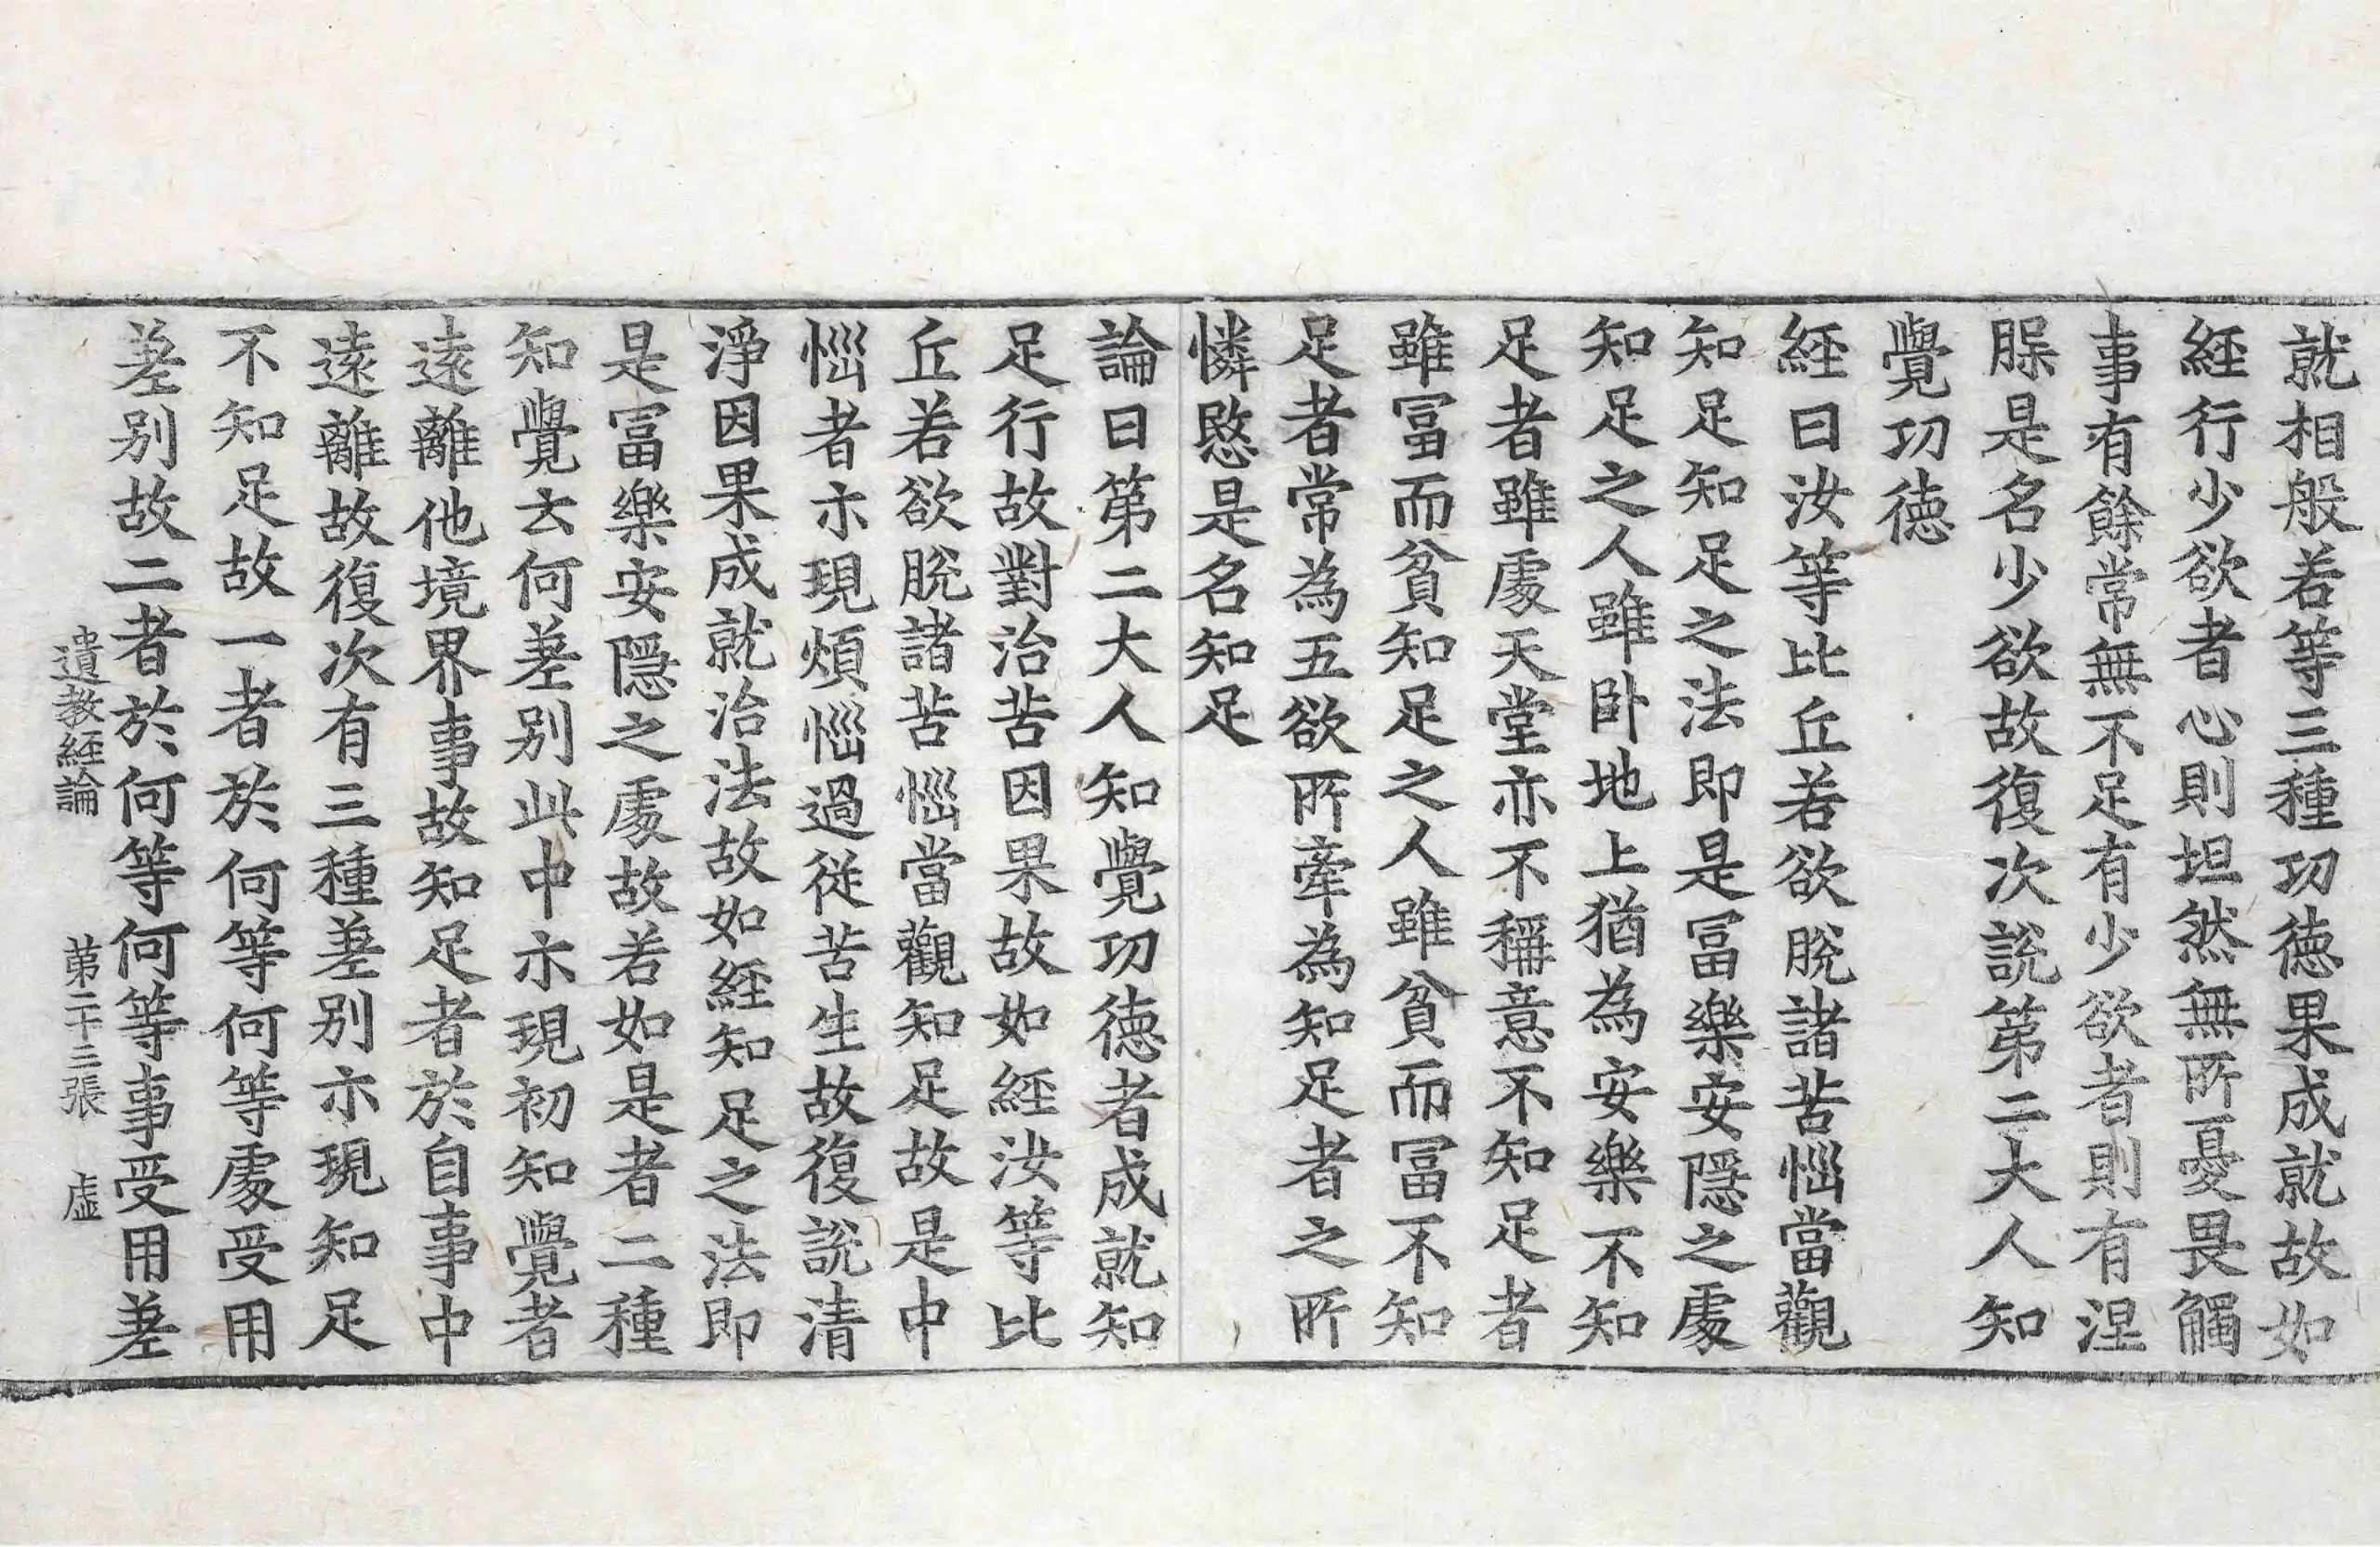 就相般若等三種功德果成就故如
經行少欲者心則坦然無所憂畏觸
事有餘常無不足有少欲者則有涅
槃是名少欲故復次說第二大人知
覺功德
經曰汝等比丘若欲脫諸苦惱當觀
知足知足之法即是冨樂安隱之處
知足之人雖卧地上猶為安樂不知
足者雖處天堂亦不稱意不知足者
雖冨而貧知足之人雖貧而冨不知
足者常為五欲所牽為知足者之所
憐愍是名知足
論曰第二大人知覺功德者成就知
足行故對治苦因果故如經汝等比
丘若欲脫諸苦惱當觀知足故是中
惱者示現煩惱過從苦生故復說清
淨因果成就治法故如經知足之法即
是冨樂安隱之處故若如是者二種
知覺云何差別此中示現初知覺者
遠離他境界事故知足者於自事中
遠離故復次有三種差別示現知足
不知足故一者於何等何等處受用
差別故二者於何等何等事受用差
遺教經論 第二十三張 虛